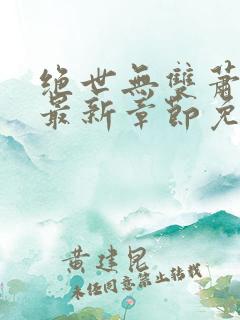 絕世無雙蕭
最新章節免
黄建昆
未经同意禁止转载